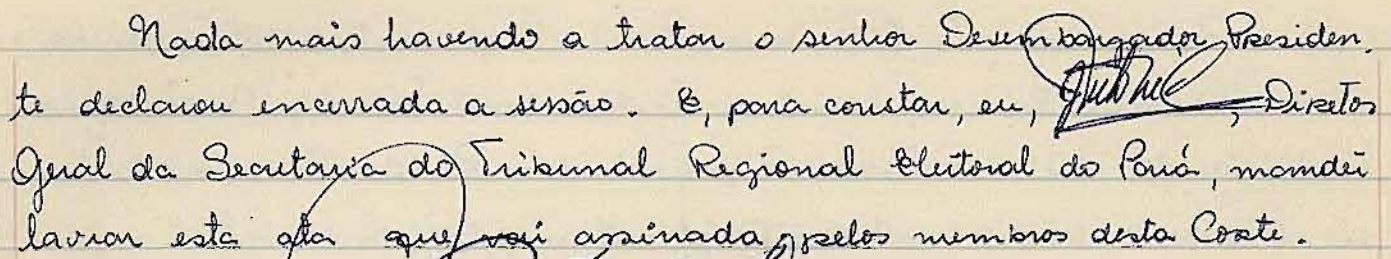 Nada mais havendo a tratar o senhor Desembargador Presiden-
te declarou encerrada a sessão. E, para constar, eu, , Diretor
Geral da Secretaria do Tribunal Regional Eleitoral do Pará, mandei
lavrar esta ata que vai assinada pelos membros desta Corte.